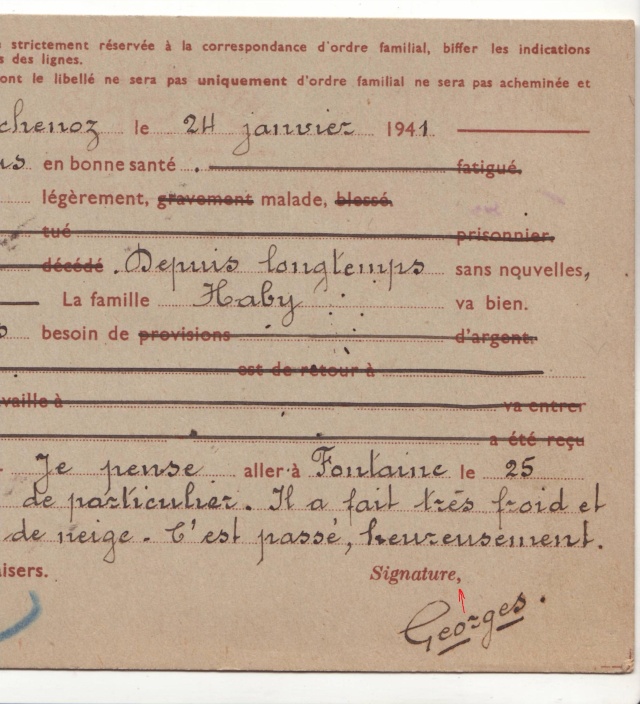 strictement réservée à la correspondance d'ordre familial, biffer les indications
s des lignes.
ont le libellé ne sera pas uniquement d'ordre familial ne sera pas acheminée et
chenoz le 24 janvier 1941
us en bonne santé . fatigué.
légèrement, gravement malade, blessé.
tué prisonnier.
décédé . Depuis longtemps sans nouvelles,
La famille Haby va bien.
s besoin de provisions d'argent.
est de retour à
vaille à va entrer
a été reçu
Je pense aller à Fontaine le 25
de particulier. Il a fait très froid et
de neige. C'est passé, heureusement.
aisers. Signature,
Georges.